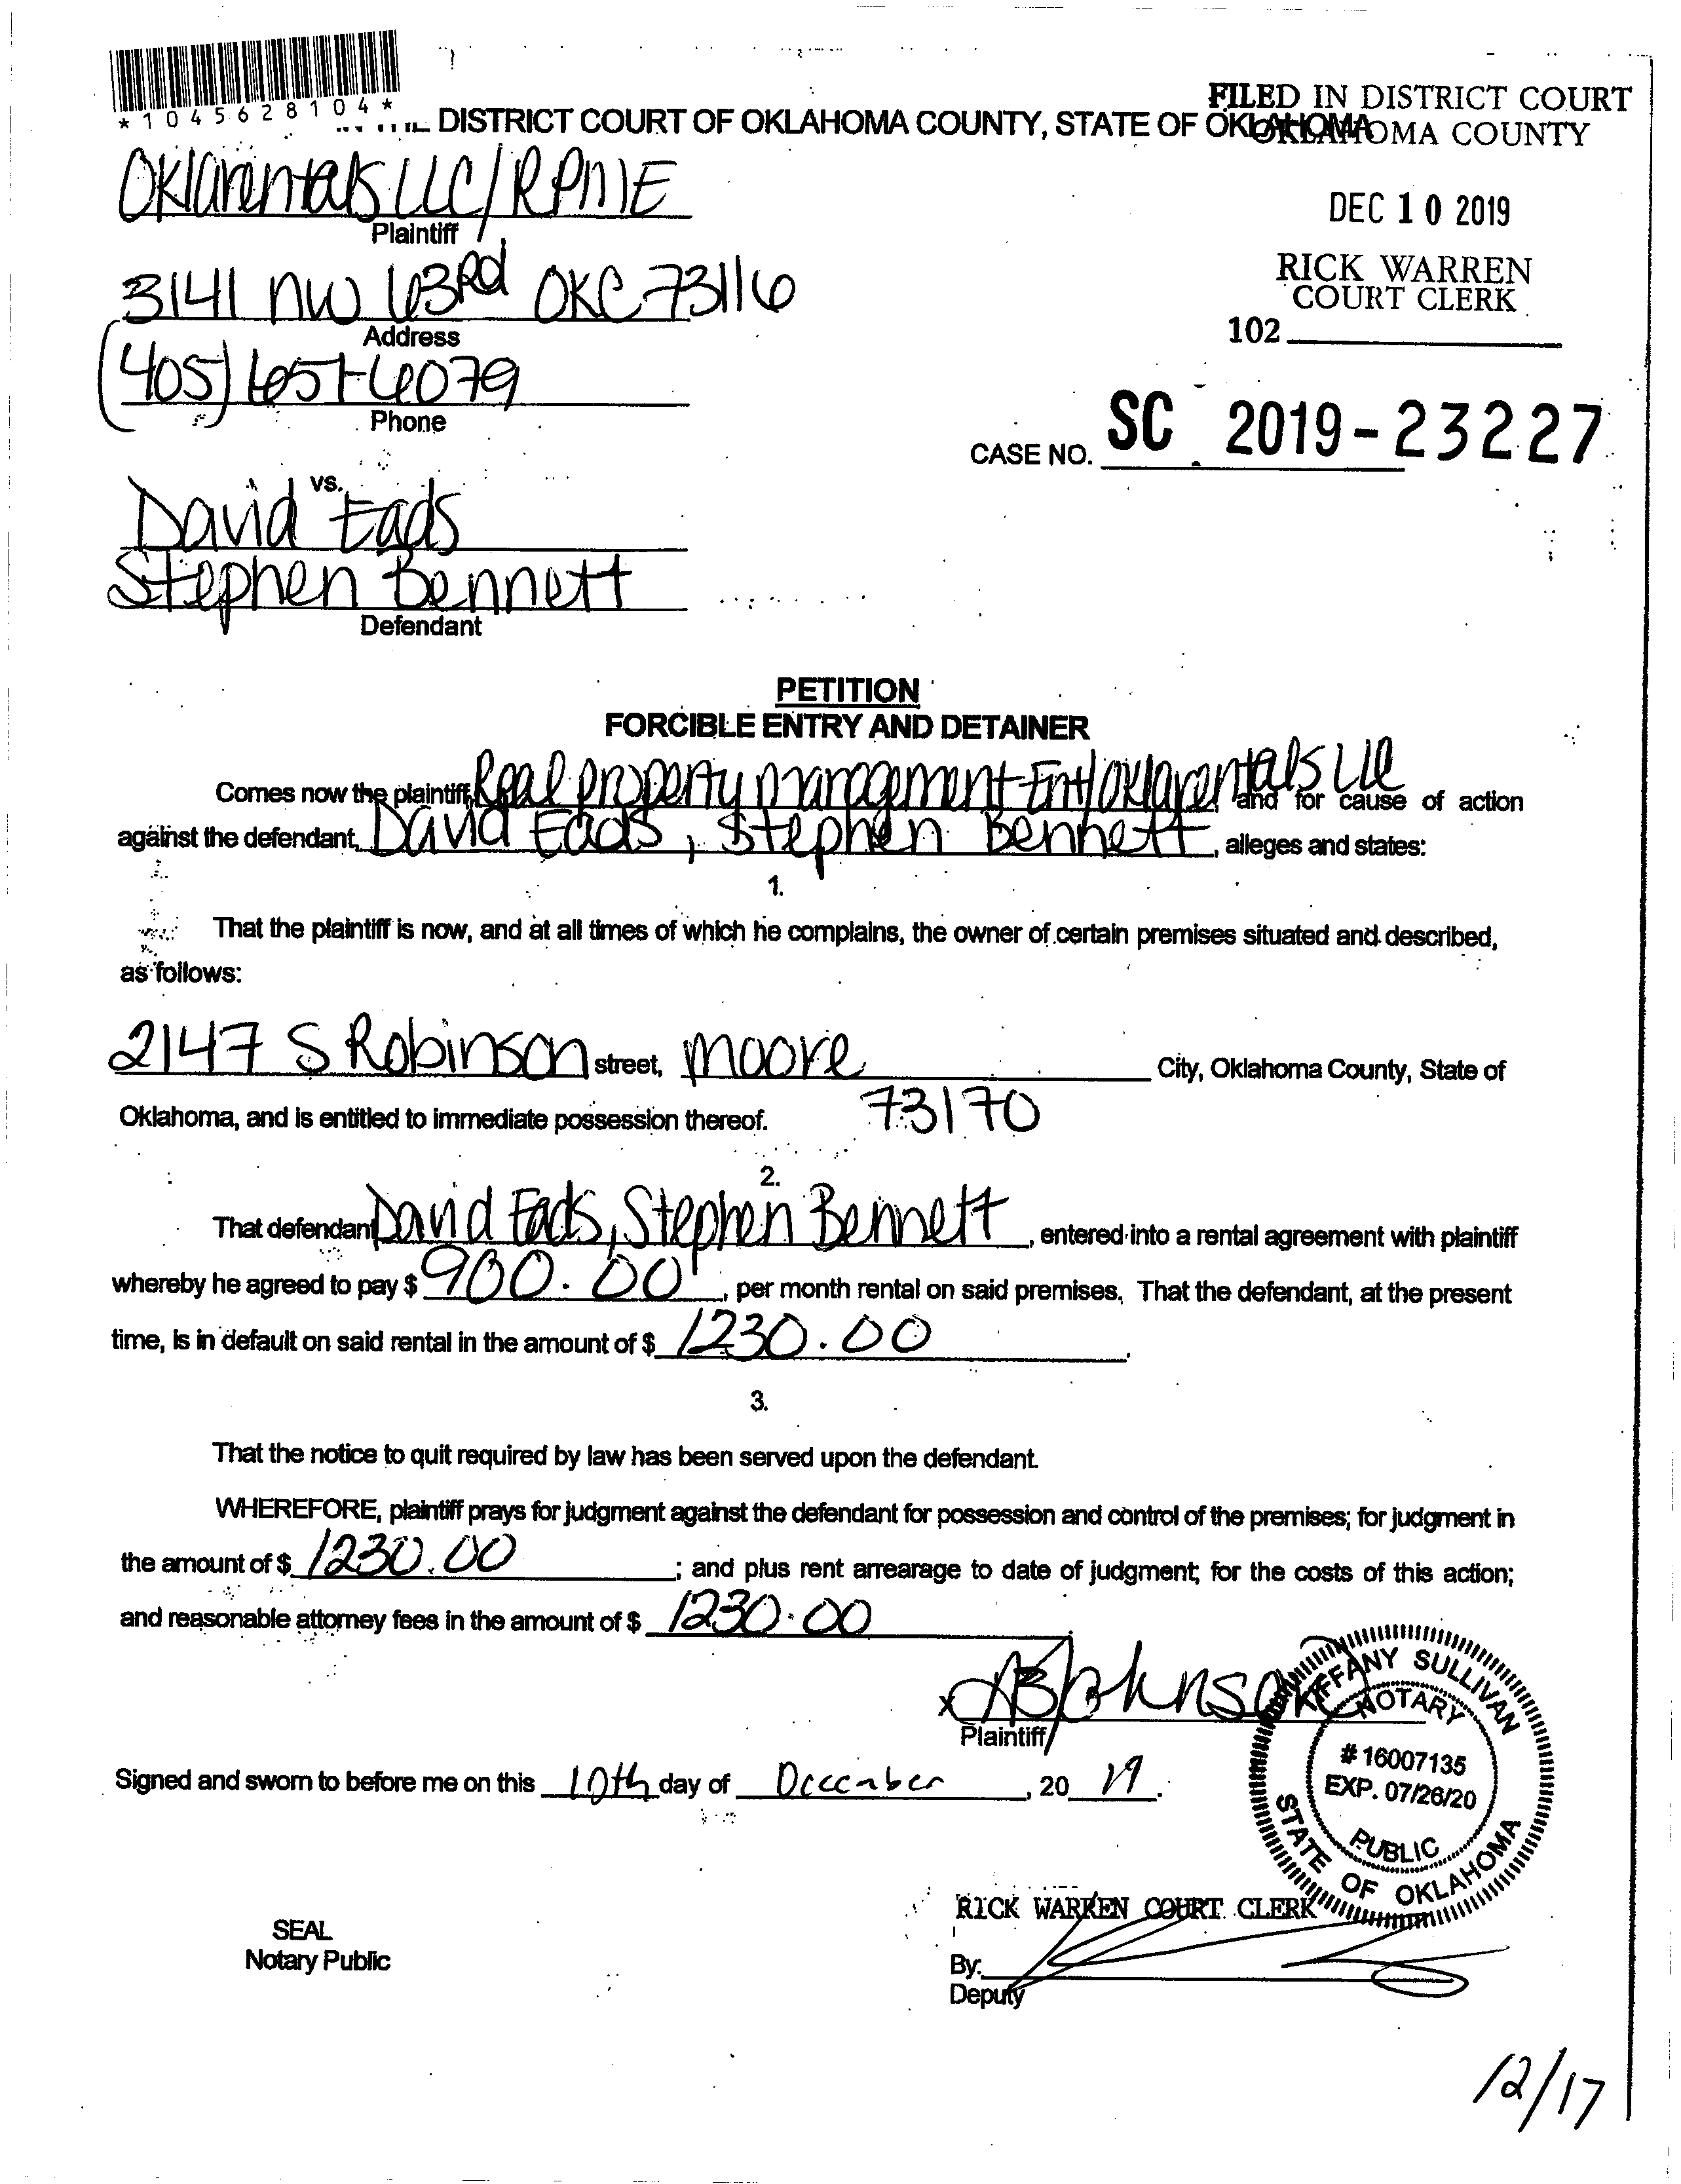 *1045628104*
DISTRICT COURT OF OKLAHOMA COUNTY, STATE OF OKLAHOMA
FILED IN DISTRICT COURT
OKLAHOMA COUNTY
Oklarentals LLC/RPME
Plaintiff
DEC 10 2019
3141 NW 63Rd OKC 73116
Address
RICK WARREN
COURT CLERK
102
(405)
Phone
CASE NO. SC 2019-23227
vs.
David Eads
Stephen Bennett
Defendant
PETITION
FORCIBLE ENTRY AND DETAINER
Comes now the plaintiff, Real property management Ent/Oklarentals LLC and for cause of action
against the defendant, David Eads, Stephen Bennett, alleges and states:
1.
That the plaintiff is now, and at all times of which he complains, the owner of certain premises situated and described,
as follows:
2147 S Robinson street, moore City, Oklahoma County, State of
Oklahoma, and is entitled to immediate possession thereof. 73170
2.
That defendant David Eads, Stephen Bennett, entered into a rental agreement with plaintiff
whereby he agreed to pay $ 900.00, per month rental on said premises. That the defendant, at the present
time, is in default on said rental in the amount of $ 1230.00.
3.
That the notice to quit required by law has been served upon the defendant.
WHEREFORE, plaintiff prays for judgment against the defendant for possession and control of the premises; for judgment in
the amount of $ 1230.00; and plus rent arrearage to date of judgment; for the costs of this action;
and reasonable attorney fees in the amount of $ 1230.00
x Johnson
Plaintiff
TIFFANY SULLIVAN
NOTARY
# 16007135
EXP. 07/26/20
PUBLIC
STATE OF OKLAHOMA
Signed and sworn to before me on this 10th day of December, 20 19.
RICK WARREN COURT CLERK
SEAL
Notary Public
By:
Deputy
12/17